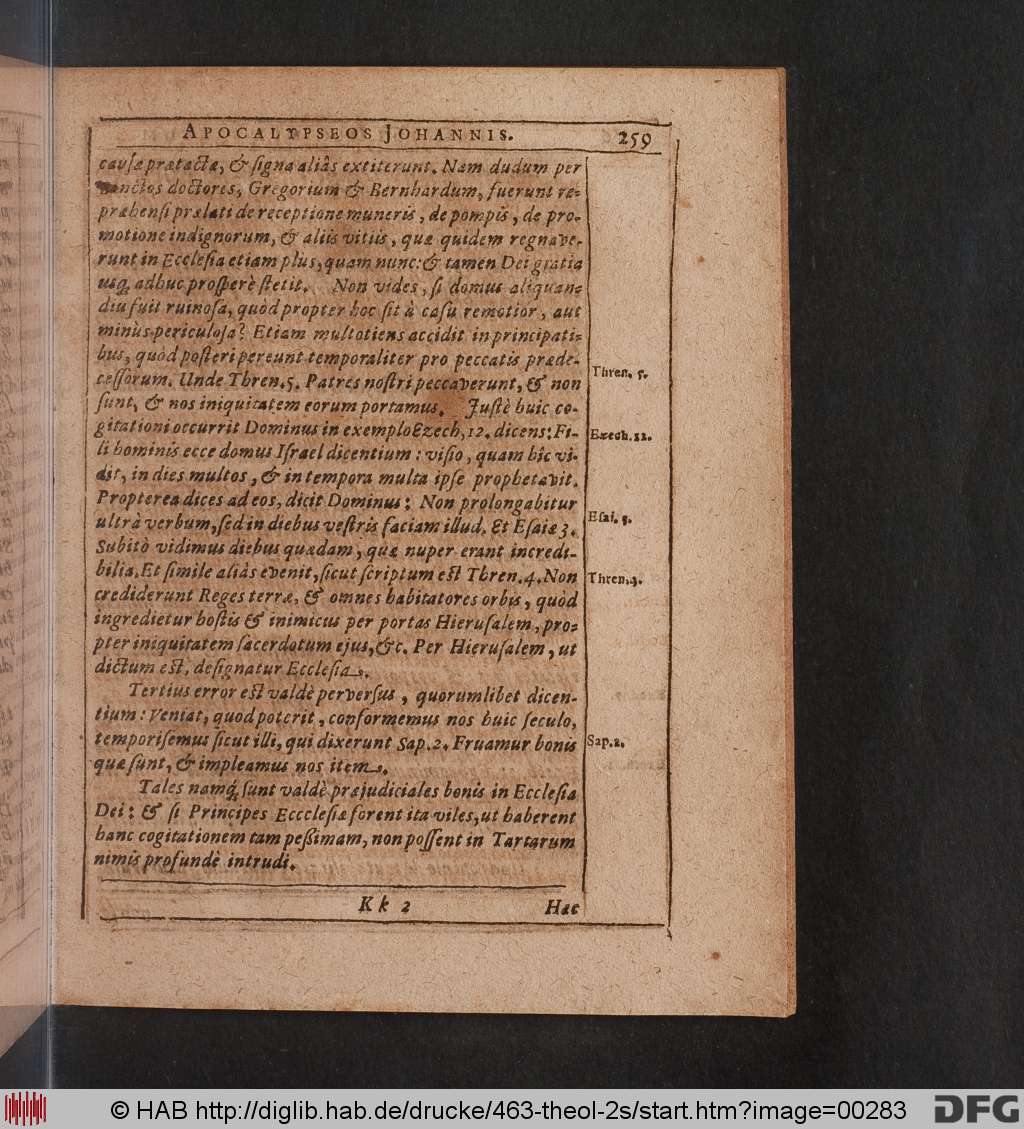 APOCALYPSEOS JOHANNIS. 259
causæ prætactæ, & signa aliàs extiterunt. Nam dudum per
sanctos doctores, Gregorium & Bernhardum, fuerunt re-
præhensi prælati de receptione muneris, de pompis, de pro-
motione indignorum, & aliis vitiis, quæ quidem regnave-
runt in Ecclesia etiam plus, quam nunc: & tamen Dei gratia
usq; adhuc prosperè stetit. Non vides, si domus aliquan-
diu fuit ruinosa, quòd propter hoc sit à casu remotior, aut
minùs periculosa? Etiam multotiens accidit in principati-
bus, quòd posteri pereunt temporaliter pro peccatis præde-
cessorum. Unde Thren. 5. Patres nostri peccaverunt, & non
sunt, & nos iniquitatem eorum portamus. Justè huic co-
gitationi occurrit Dominus in exemplo Ezech, 12. dicens: Fi-
li hominis ecce domus Israel dicentium: visio, quam hic vi-
dit, in dies multos, & in tempora multa ipse prophetavit.
Propterea dices ad eos, dicit Dominus: Non prolongabitur
ultrà verbum, sed in diebus vestris faciam illud. Et Esaiæ 3.
Subitò vidimus diebus quædam, quæ nuper erant incredi-
bilia. Et simile aliàs evenit, sicut scriptum est Thren. 4. Non
crediderunt Reges terræ, & omnes habitatores orbis, quòd
ingredietur hostis & inimicus per portas Hierusalem, pro-
pter iniquitatem sacerdotum ejus, &c. Per Hierusalem, ut
dictum est, designatur Ecclesia.
Tertius error est valdè perversus, quorumlibet dicen-
tium: Veniat, quod poterit, conformemus nos huic seculo,
temporisemus sicut illi, qui dixerunt Sap. 2. Fruamur bonis
quæ sunt, & impleamus nos item.
Tales namq; sunt valdè præjudiciales bonis in Ecclesia
Dei: & si Principes Ecccclesiæ forent ita viles, ut haberent
hanc cogitationem tam peßimam, non possent in Tartarum
nimis profundè intrudi.
Kk 2 Hæc
Thren. 5.
Ezech. 12.
Esai. 3.
Thren. 4.
Sap. 2.
© HAB http://diglib.hab.de/drucke/463-theol-2s/start.htm?image=00283 DFG